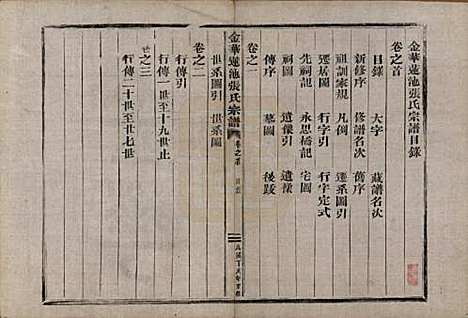 金華蓮池張氏宗譜目錄
卷之首
目錄 大字 藏譜名次
新修序 修譜名次 舊序
祖訓家規 凡例 遷系圖引
遷居圖 行字引 行字定式
先祠記 永思橋記 宅圖
祠圖 遺像引 遺像
傳序 墓圖 後跋
卷之一
世系圖引 世系圖
金華蓮池張氏宗譜 卷之首
卷之二
行傳引
行傳一世至十九世止
卷之三
行傳二十世至廿七世